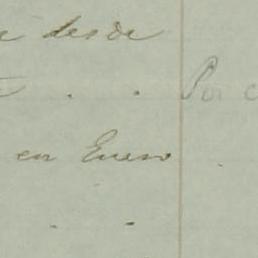 desde
Por
en Enero